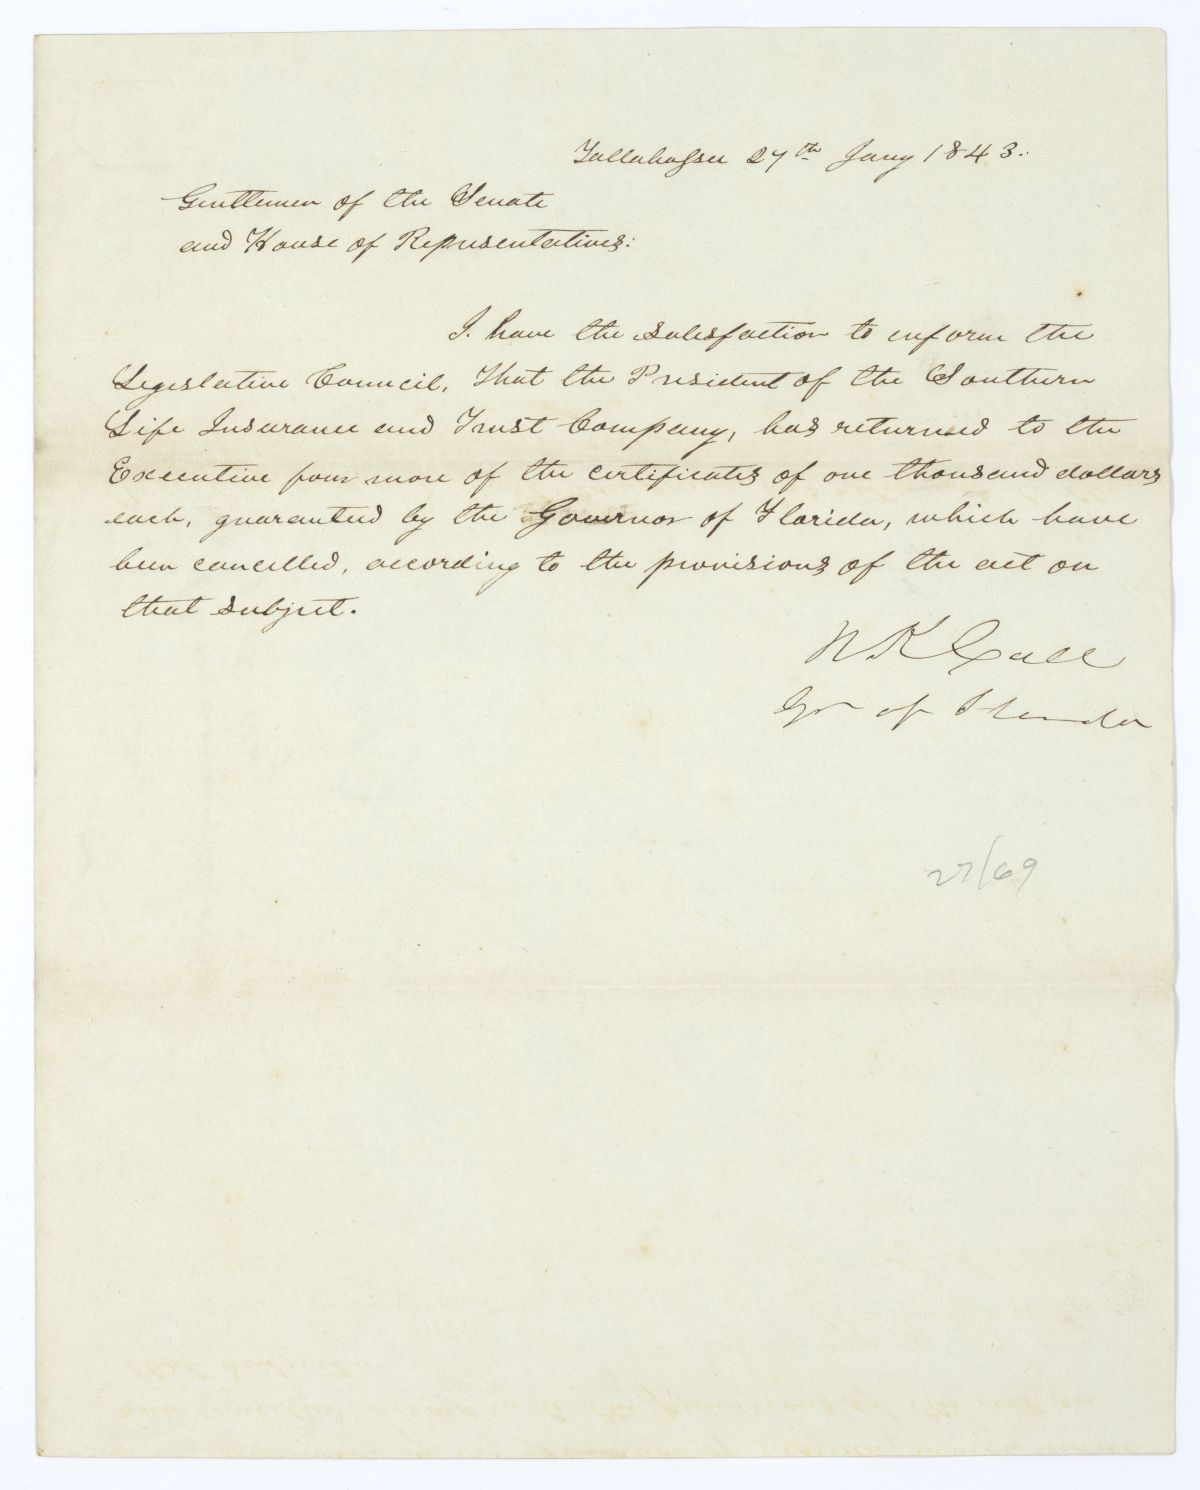 Tallahassee 27th Jany 1843.
Gentlemen of the Senate
and House of Representatives:
I have the satisfaction to inform the
Legislative Council, that the President of the Southern
Life Insurance and Trust Company, has returned to the
Executive four more of the certificates of one thousand dollars
each, guaranteed by the Governor of Florida, which have
been cancelled, according to the provisions of the act on
that subject.
R K Call
Gov of Florida
27/69